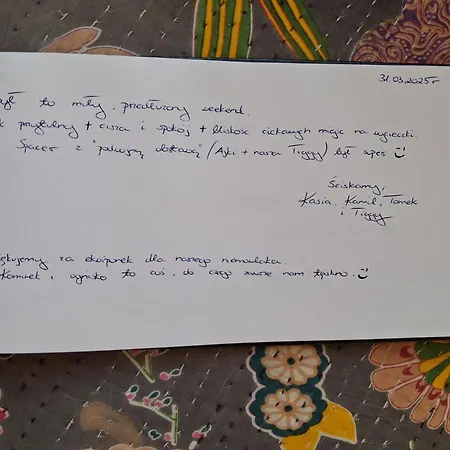 31.03.2025r
był to miły, przedłużony weekend.
przytulny + cisza i spokój + bliskość ciekawych miejsc na wycieczki.
Spacer z "psią obstawą" (Ajki + nasza Tiggy) był super :)
Ściskamy,
Kasia, Kamil, Tomek
i Tiggy
za ekwipunek dla naszego niemowlaka.
i ognisko to coś, do czego zawsze nam tęskno. :)